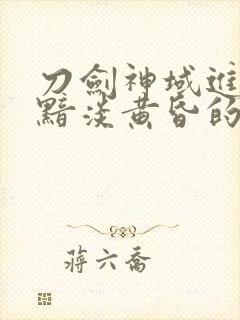 刀劍神域進
黯淡黃昏的
蔣六喬